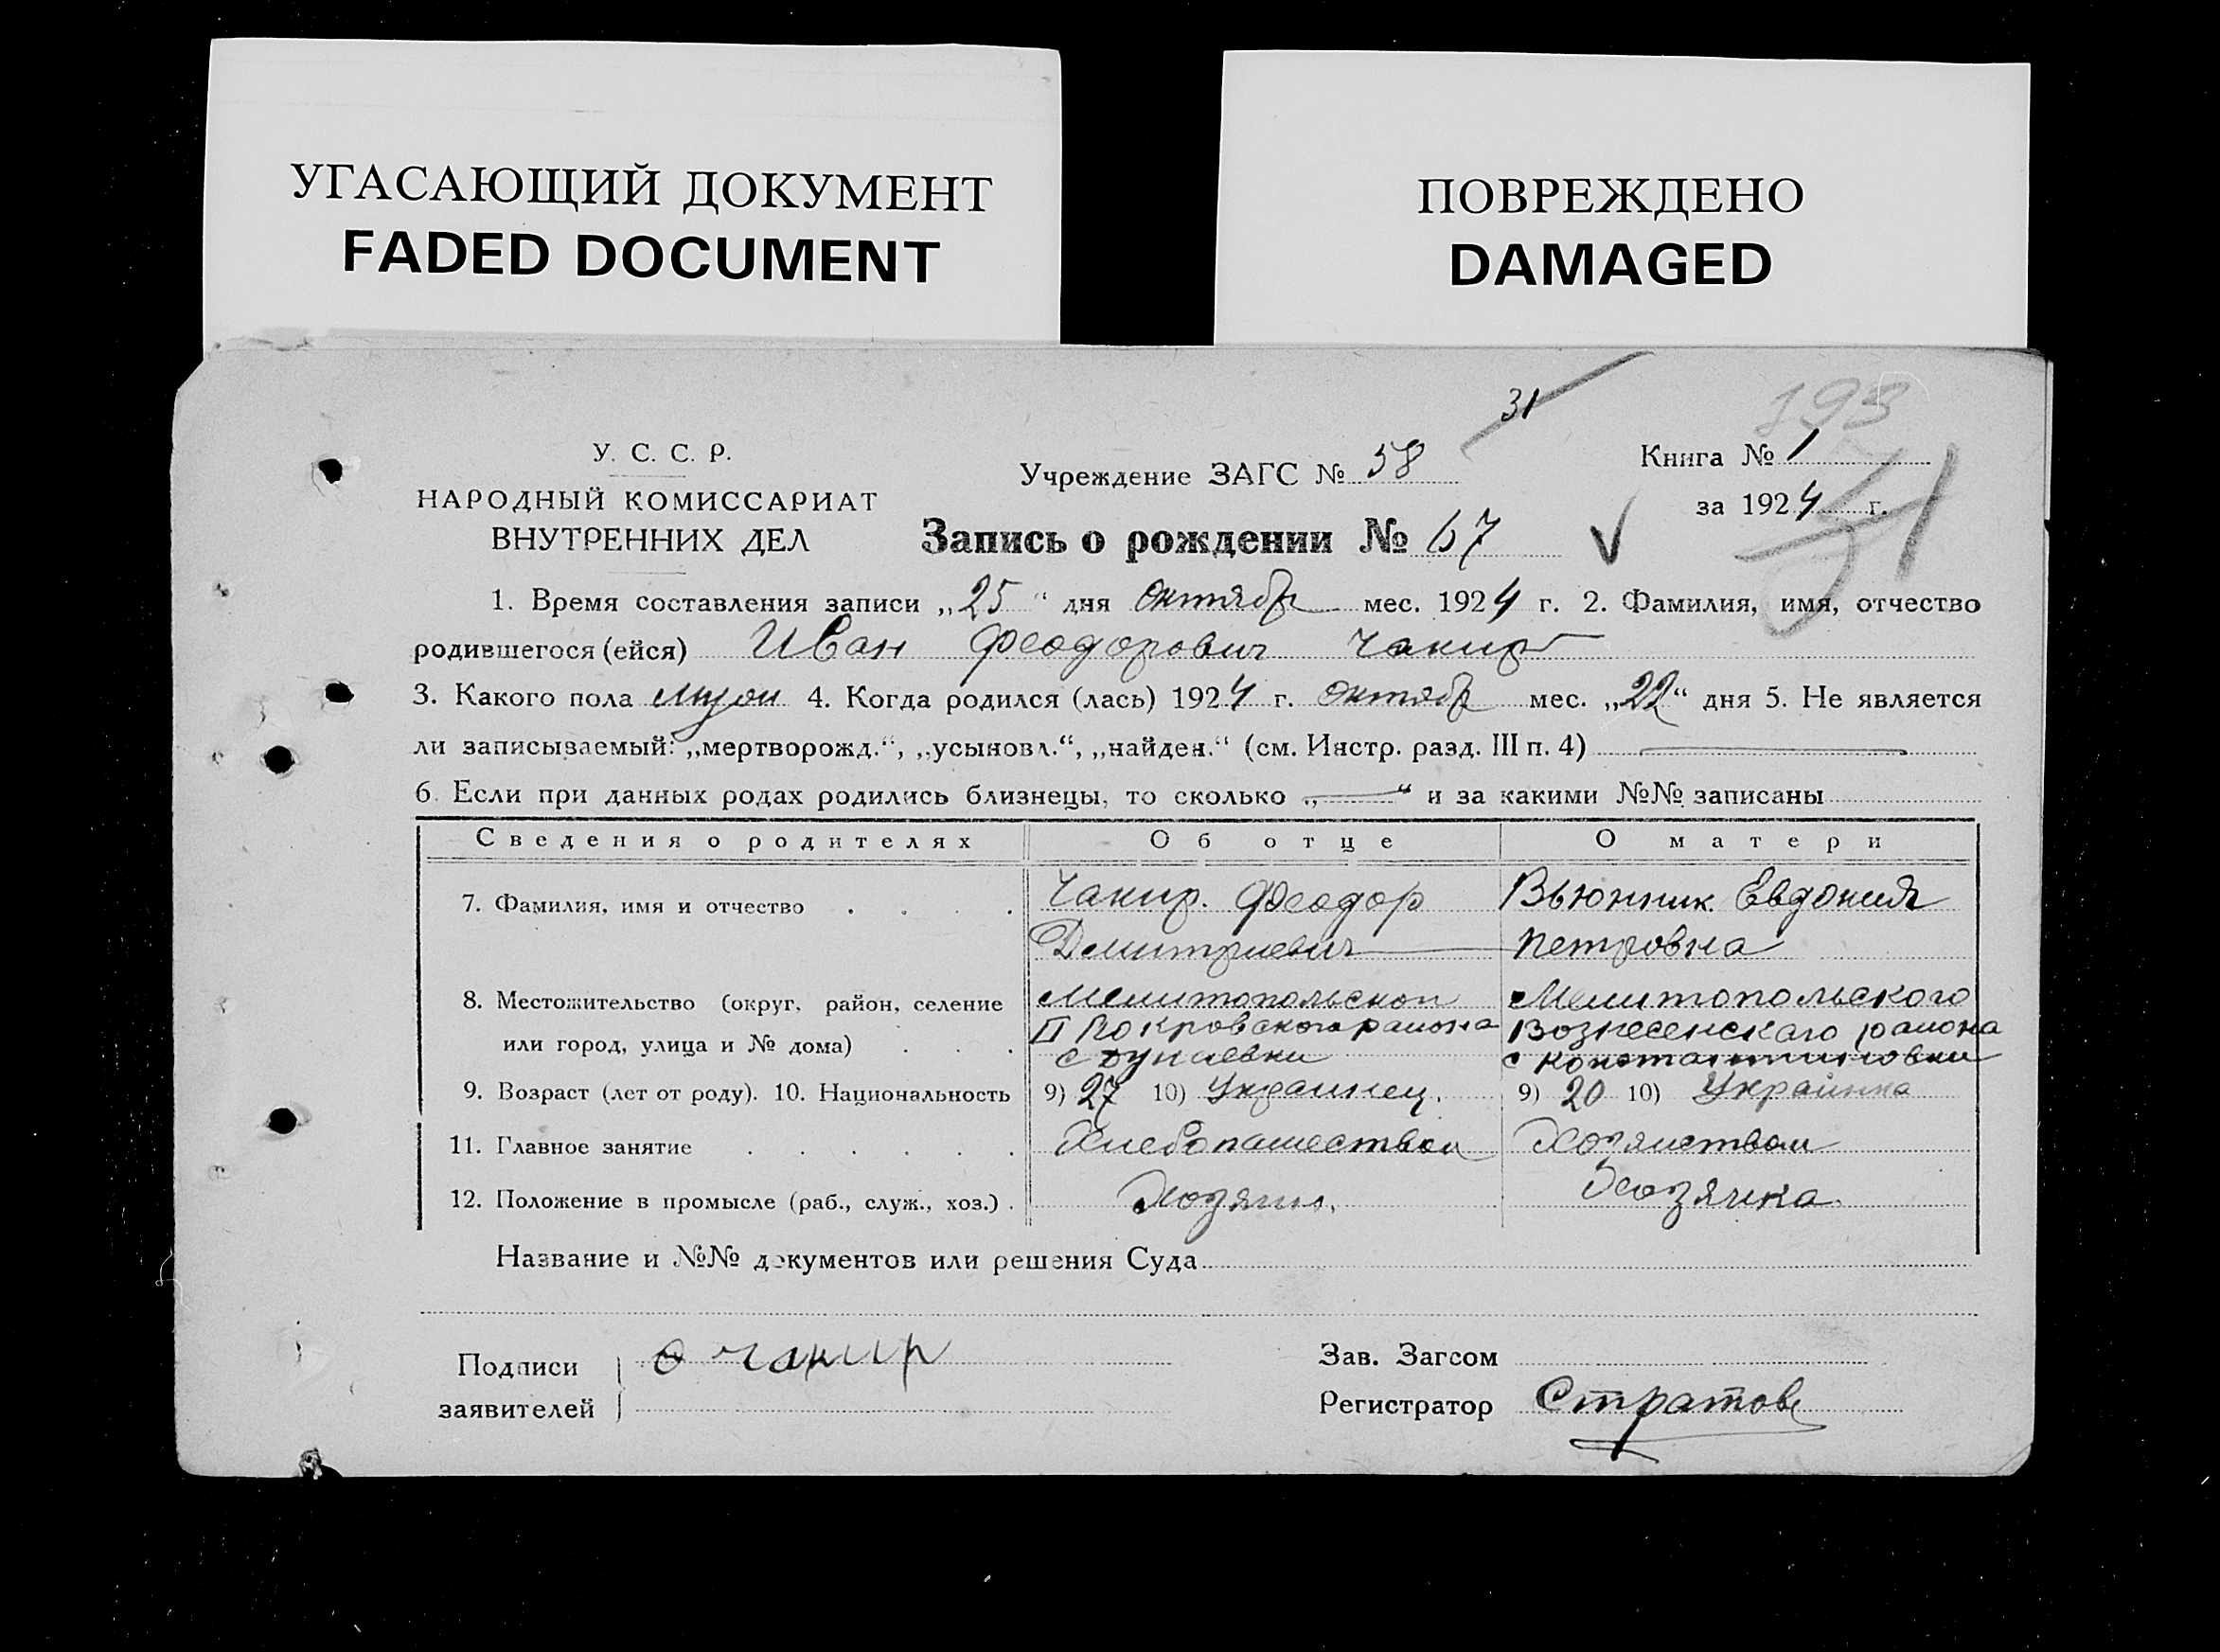 УГАСАЮЩИЙ ДОКУМЕНТ
FADED DOCUMENT
ПОВРЕЖДЕНО
DAMAGED
31
193
51
У. С. С. Р.
НАРОДНЫЙ КОМИССАРИАТ
ВНУТРЕННИХ ДЕЛ
Учреждение ЗАГС № 58
Книга № 1
за 1924 г.
Запись о рождении № 67
1. Время составления записи „25“ дня октябр мес. 1924 г. 2. Фамилия, имя, отчество
родившегося (ейся) Иван Феодорович Чакир
3. Какого пола муж 4. Когда родился (лась) 1924 г. октябр мес. „22“ дня 5. Не является
ли записываемый: „мертворожд.“, „усыновл.“, „найден.“ (см. Инстр. разд. III п. 4)
6. Если при данных родах родились близнецы, то сколько „ “ и за какими №№ записаны
Сведения о родителях Об отце О матери
7. Фамилия, имя и отчество Чакир. Феодор Вьюнник Евдокия
Дмитриевич Петровна
8. Местожительство (округ, район, селение Мелитопольского
II Покровского района Вознесенскаго района
или город, улица и № дома) с с Константиновки
9. Возраст (лет от роду). 10. Национальность 9) 27 10) Украинец. 9) 20 10) Украинка
11. Главное занятие Хлебопашеством Хозяиством
12. Положение в промысле (раб., служ., хоз.) Хозяин. Хозяика
Название и №№ документов или решения Суда
Подписи
заявителей
чакир
Зав. Загсом
Регистратор Стратов